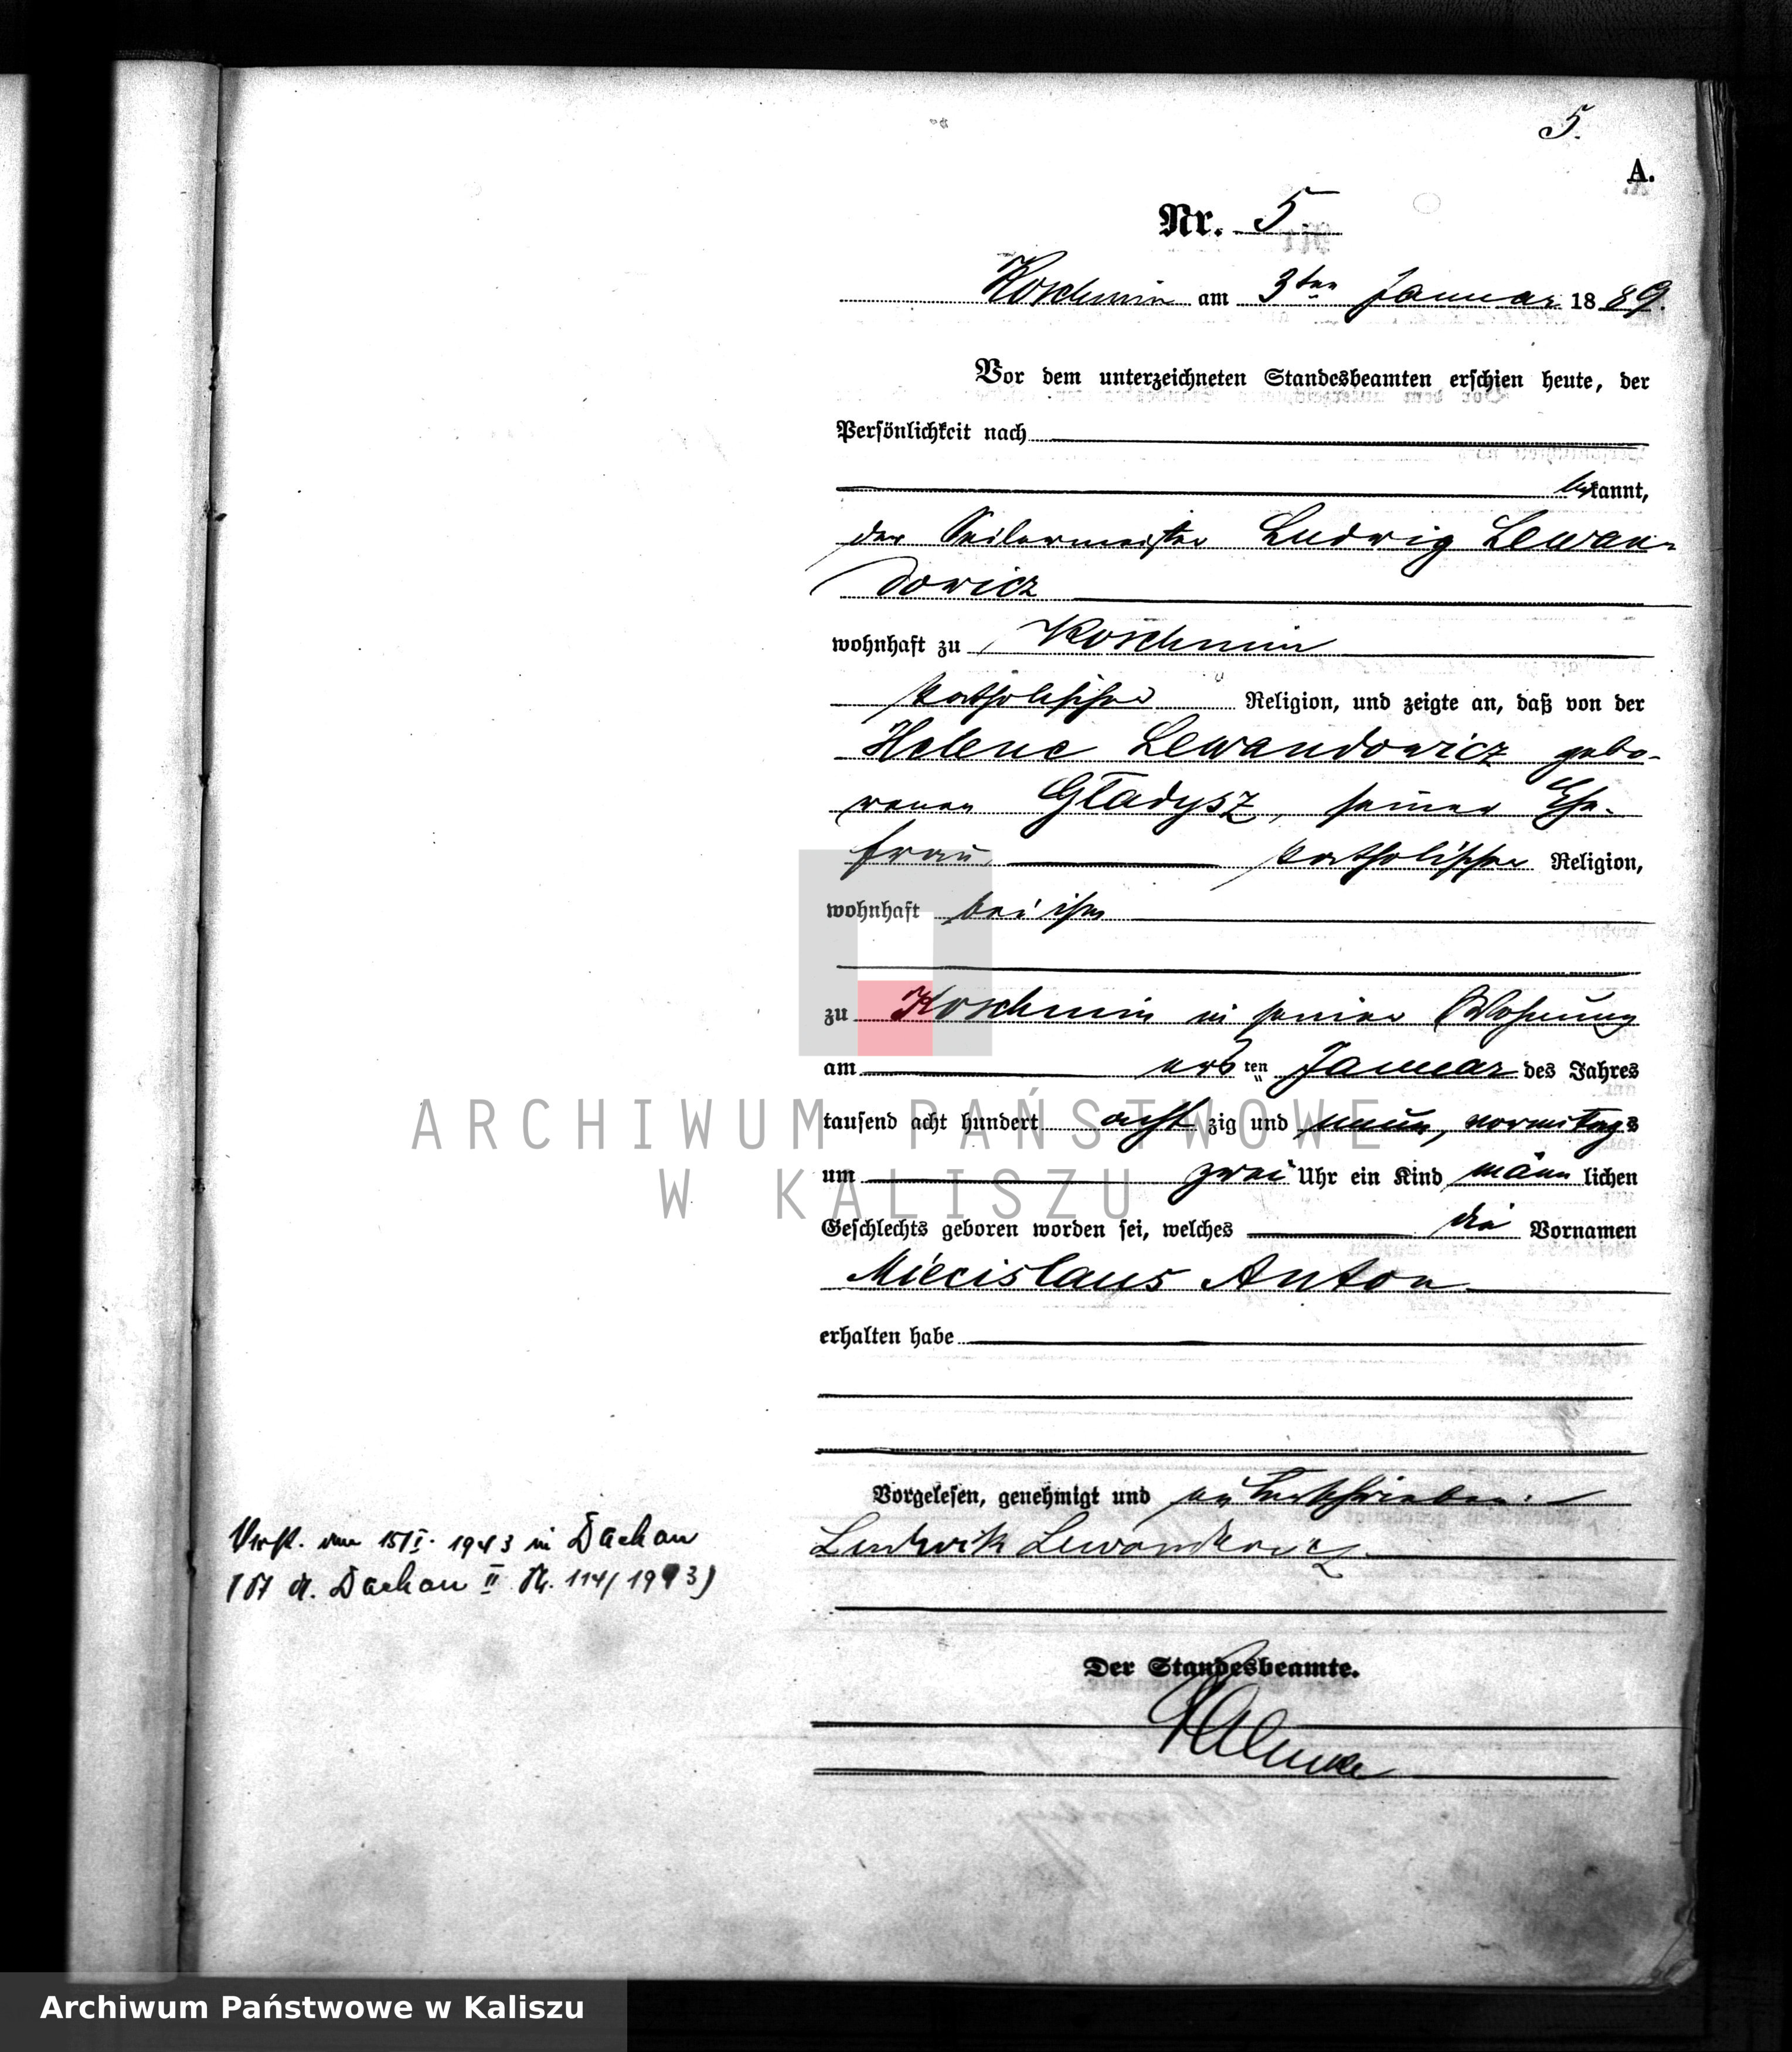 5.
A.
Nr. 5
Koschmin am 3ten Januar 1889.
Vor dem unterzeichneten Standesbeamten erschien heute, der
Persönlichkeit nach
bekannt,
der Seilermeister Ludwig Lewan-
dowicz
wohnhaft zu Koschmin
katholischer Religion, und zeigte an, daß von der
Helene Lewandowicz gebo-
renen Gładysz, seiner Ehe-
frau katholischer Religion,
wohnhaft bei ihm
zu Koschmin in seiner Wohnung
am ersten Januar des Jahres
tausend acht hundert achtzig und neun, vormittags
um zwei Uhr ein Kind männlichen
Geschlechts geboren worden sei, welches die Vornamen
Miecislaus Anton
erhalten habe
Vorgelesen, genehmigt und unterschrieben:
Ludwik Lewandowicz
Der Standesbeamte.
Verst. am 15/I. 1943 in Dachau
(St A. Dachau II Nr. 114/1943)
ARCHIWUM PAŃSTWOWE
W KALISZU
Archiwum Państwowe w Kaliszu